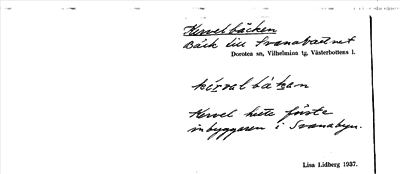 Kervelbäcken
Bäck till Svanabactnet
Doroten sn, Vilhelmina tg, Västerbottens l.
kǽrval bá kan
Kervel hette förste
inbyggaren i Svanabyn.
Lisa Lidberg 1937.